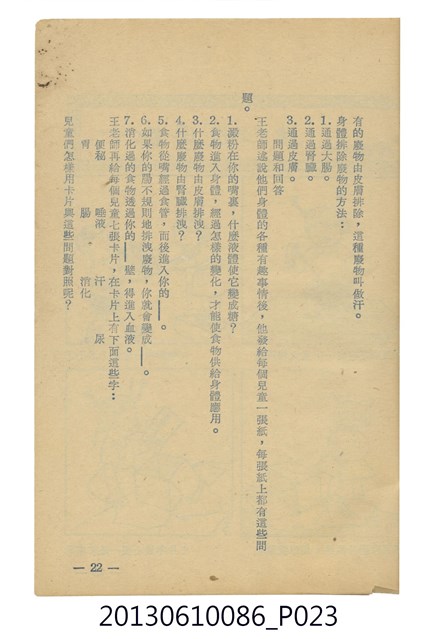 有的廢物由皮膚排除，這種廢物叫做汗。
身體排除廢物的方法：
1. 通過大腸。
2. 通過腎臟。
3. 通過皮膚。
問題和回答
王老師述說他們身體的各種有趣事情後，他發給每個兒童一張紙，每張紙上都有這些問
題。
1. 澱粉在你的嘴裏，什麼液體使它變成糖？
2. 食物進入身體，經過怎樣的變化，才能使食物供給身體應用。
3. 什麼廢物由皮膚排洩？
4. 什麼廢物由腎臟排洩？
5. 食物從嘴經過食管，而後進入你的——。
6. 如果你的腸不規則地排洩廢物，你就會變成——。
7. 消化過的食物透過你的——壁，得進入血液。
王老師再給每個兒童七張卡片，在卡片上有下面這些字：
便秘 唾液 汗 尿
胃 腸 消化
兒童們怎樣用卡片與這些問題對照呢？
— 22 —
20130610086_P023